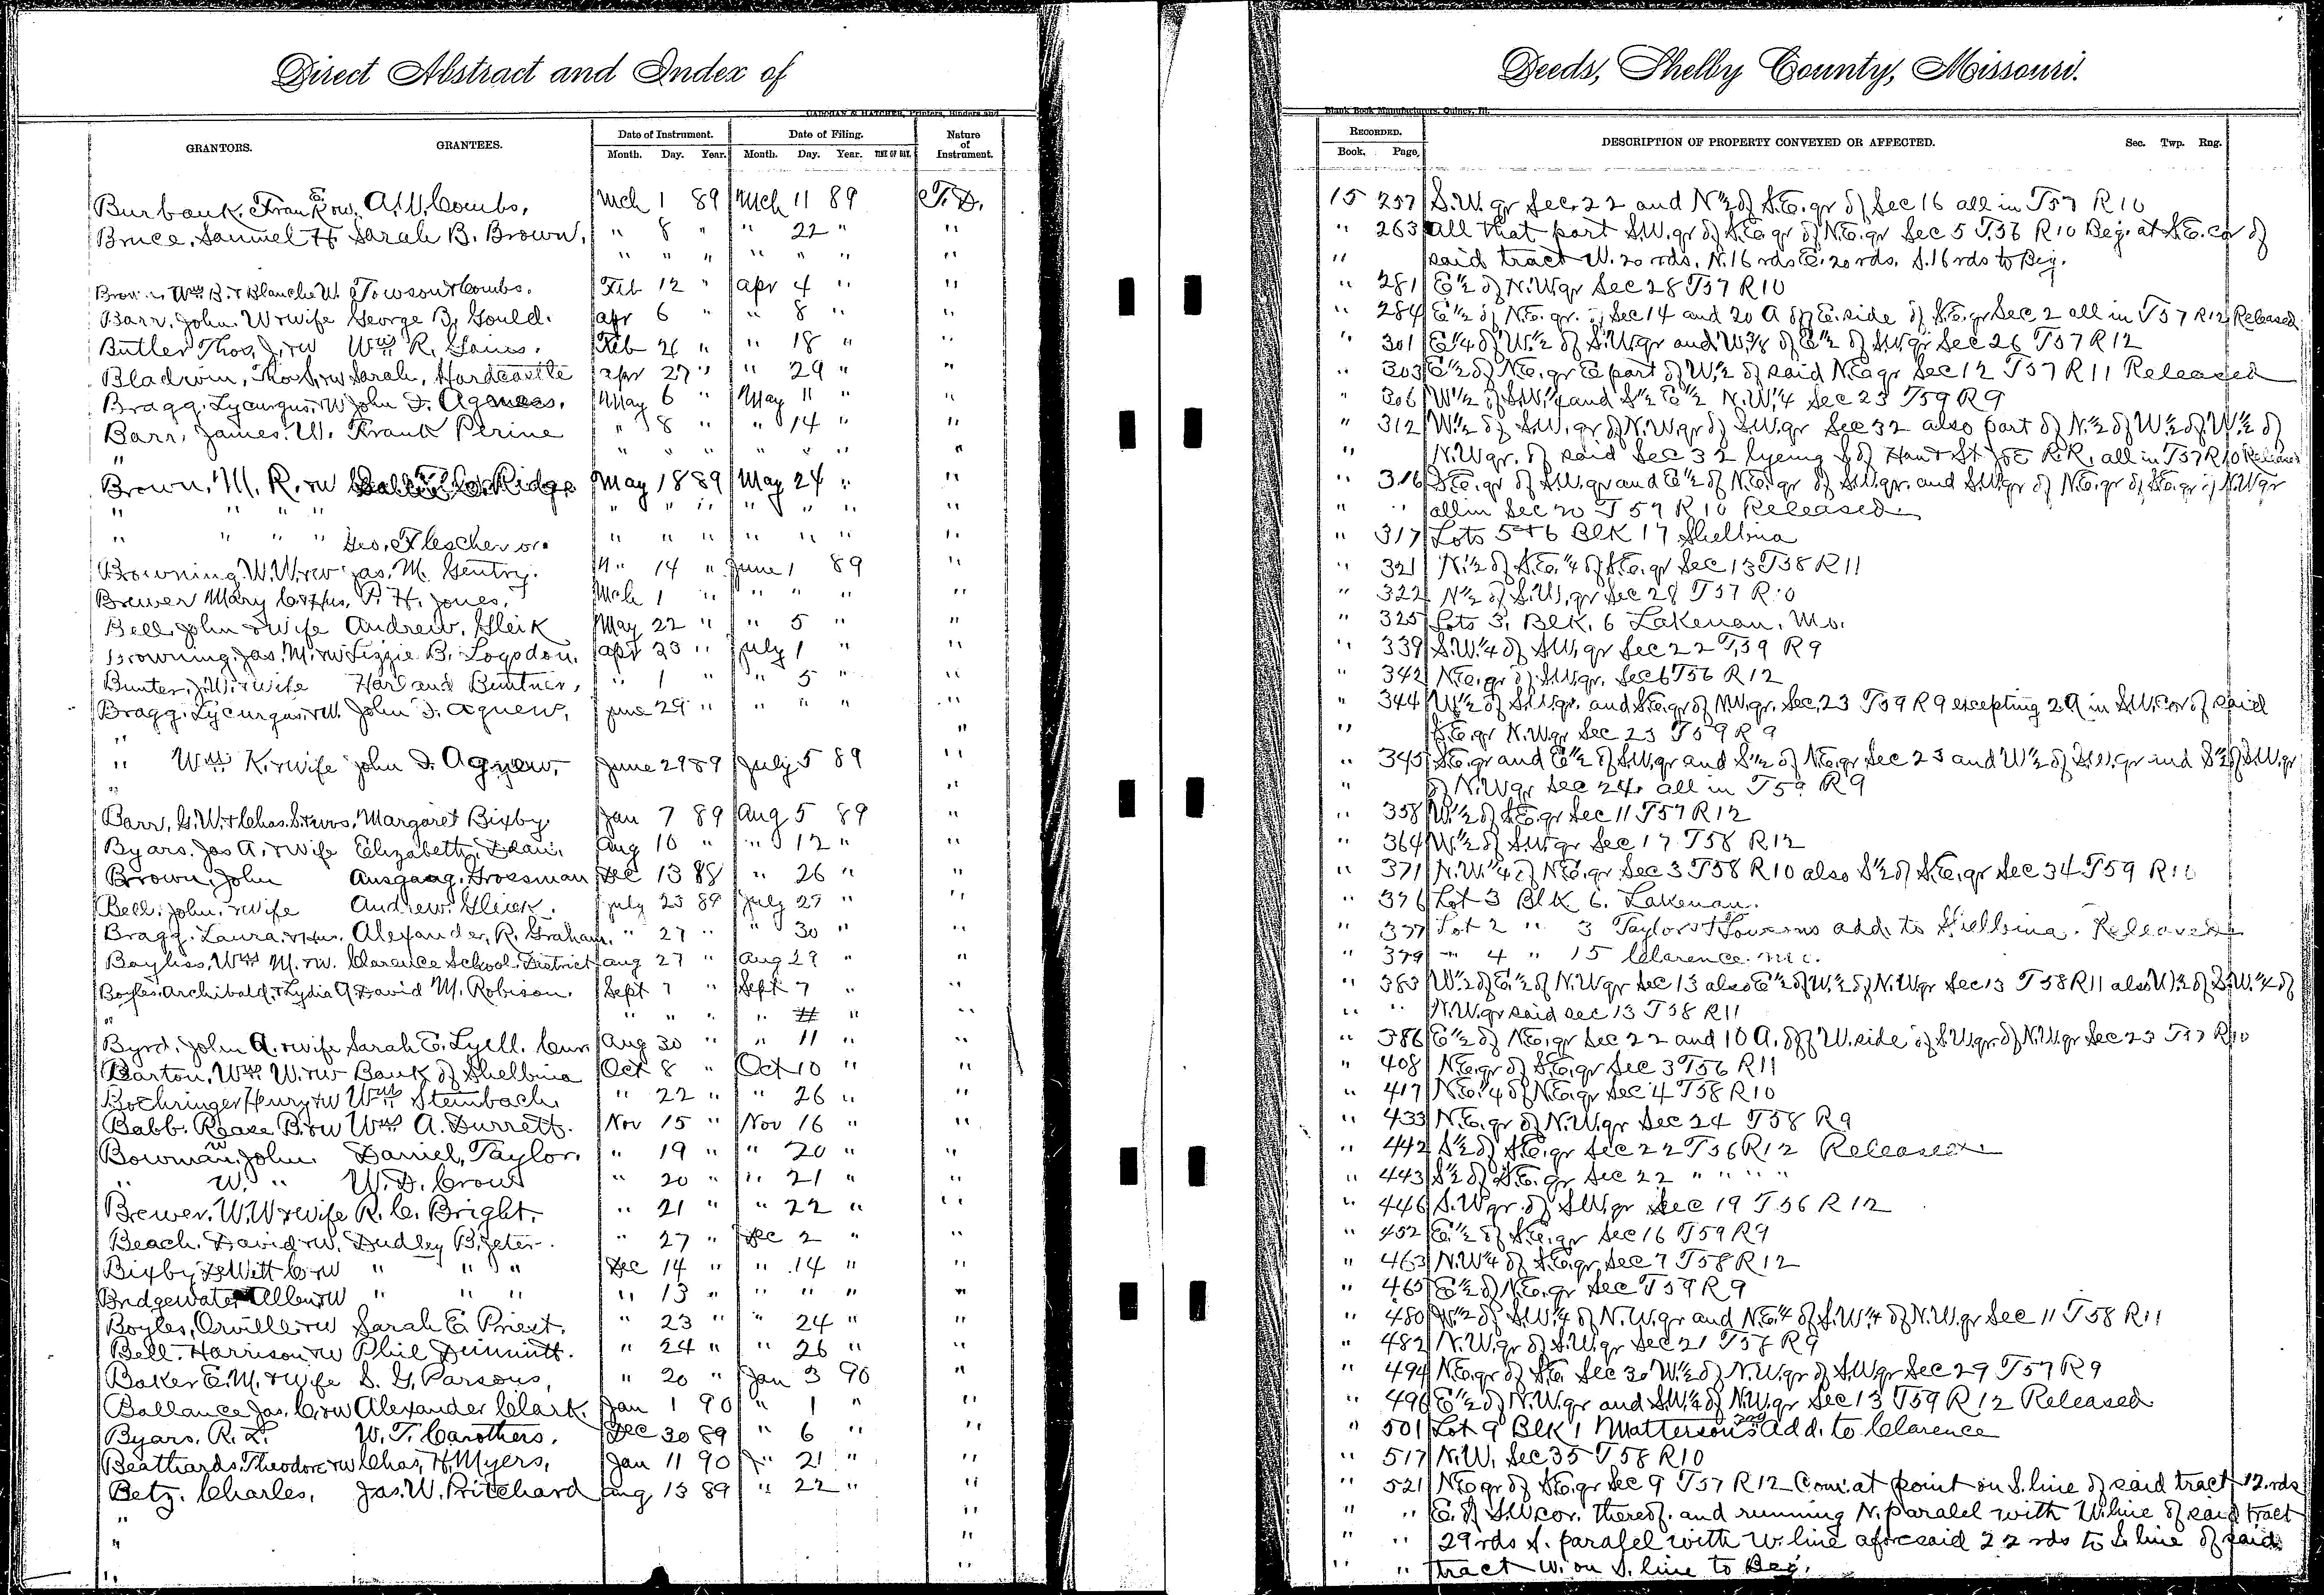 Direct Abstract and Index of Deeds, Shelby County, Missouri.
GRANTORS. GRANTEES. Date of Instrument. Month. Day. Year. Date of Filing. Month. Day. Year. TIME OF DAY. Nature of Instrument. RECORDED. Book. Page. DESCRIPTION OF PROPERTY CONVEYED OR AFFECTED. Sec. Twp. Rng.
Blank Book Manufacturers, Quincy, Ill.
Burbank, Frank E r w. A. W. Combs. Mch 1 89 Mch 11 89 T.D. 15 257 S.W. qr Sec. 22 and N 1/2 of S.E. qr of Sec 16 all in T57 R10
Bruce, Samuel H. Sarah B. Brown. " 8 " " 22 " " " 263 All that part S.W. qr of S.E. qr of N.E. qr Sec 5 T.56 R10 Beg. at S.E. cor of
" " " " " " " " said tract W. 20 rds. N. 16 rds E. 20 rds. S. 16 rds to Beg.
Brown Wm. B. & Blanche W. Towson & Combs. Feb 12 " Apr 4 " " " 281 E 1/2 of N.W qr Sec 28 T57 R10
Barr, John. W & wife George B. Gould. Apr 6 " " 8 " " " 284 E 1/2 of N.E. qr. of Sec 14 and 20 A off E. side of S.E. qr Sec 2 all in T57 R12 Released
Butler Thos. J. & W Wm R. Gaines. Feb " " 18 " " " 301 E 1/4 of W. 1/2 of S.W. qr and W. 3/8 of E 1/2 of S.W. qr Sec 26 T57 R12
Bladwin, Thos. & w Sarah, Hardcastle Apr 27 " " 29 " " " 303 E 1/2 of N.E. qr E part of W. 1/2 of said N.E. qr Sec 12 T57 R11 Released
Bragg, Lycurgus. & W John F. May 6 " May 11 " " " 306 W 1/2 of S.W. 1/4 and S 1/2 E 1/2 N.W. 1/4 Sec 23 T59 R9
Barr, James. W. Frank Perine " 8 " " 14 " " " 312 W. 1/2 of S.W. qr of N.W. qr of S.W. qr Sec 32 also part of N. 1/2 of W. 1/2 of W. 1/2 of
" " " " " " " " N.W qr. of said Sec 32 lyeing S of Han & St Joe R.R. all in T57 R10 Released
Brown, M. R. & W May 18 89 May 24 " " " 316 S.E. qr of S.W. qr and E 1/2 of N.E. qr of S.W. qr. and S.W. qr of N.E. qr of S.E. qr of N.W qr
" " " " " " " " " " " " " all in Sec 20 T57 R10 Released
" " " " Geo. " " " " " " " " 317 Lots 5 & 6 Blk 17 Shelbina
Browning, W. W. & w Jas. M. Gentry. 14 " June 1 89 " " 321 N. 1/2 of S.E. 1/4 of S.E. qr Sec 13 T58 R11
Brewer Mary C. & Hus. P. H. Jones. Mch 1 " " " " " " 322 N 1/2 of S.W. qr Sec 28 T57 R10
Bell, John & Wife Andrew. Gleik May 22 " " 5 " " " 325 Lots 3, Blk. 6 Lakenan, Mo.
Browning, Jas. M. & w Lizzie B. Logsdon. Apr 23 " July 1 " " " 339 S.W. 1/4 of S.W. qr Sec 22 T.59 R9
Bunter, J. W. & wife Harland Buntner, " 1 " " 5 " " " 342 N.E. qr of S.W. qr. Sec 6 T56 R12
Bragg, Lycurgus, & W. John F. Agnew, June 29 " " " " " " 344 W 1/2 of S.W. qr. and S.E. qr of N.W. qr. Sec. 23 T59 R9 excepting 2A in S.W. Cor of said
" " " " S.E. qr N.W qr Sec 23 T59 R9
" Wm K. & wife John F. Agnew, June 29 89 July 5 89 " " 345 S.E. qr and E 1/2 of S.W. qr and S 1/2 of N.E. qr Sec 23 and W 1/2 of S.W. qr and S 1/2 of S.W. qr
" " " of N.W qr Sec 24. all in T59 R9
Barr, G. W. & Chas. Margaret Bixby Jan 7 89 Aug 5 89 " " 358 W. 1/2 of S.E. qr Sec 11 T57 R12
Byars, Jas A. & wife Elizabeth, Dean. Aug 10 " " 12 " " " 364 W. 1/2 of S.W. qr Sec 17 T58 R12
Brown, John Ausgaag. Grossman Dec 13 88 " 26 " " " 371 N.W. 1/4 of N.E. qr Sec 3 T58 R10 also S 1/2 of S.E. qr Sec 34 T59 R10
Bell, John, & wife Andrew. Gleik. July 23 89 July 27 " " " 376 Lot 3 Blk 6. Lakenan.
Bragg, Laura. & Hus. Alexander, R. Graham. " 27 " " 30 " " " 377 Lot 2 " 3 Taylors & Towsons add. to Shelbina. Released
Bayliss, Wm M. & w. Clarence School District Aug 27 " Aug 29 " " " 379 " 4 " 15 Clarence. Mo.
Boyles, Archibald, & Lydia A. David M. Robison. Sept 7 " Sept 7 " " " 383 W. 1/2 of E. 1/2 of N.W qr Sec 13 also E 1/2 of W. 1/2 of N.W qr Sec 13 T58 R11 also W 1/2 of S.W. 1/4 of
" " " " " " " " " N.W. qr said sec 13 T58 R11
Byrd, John A. & wife Sarah E. Lyell. Cur. Aug 30 " " 11 " " " 386 E 1/2 of N.E. qr Sec 22 and 10 A. off W. side of S.W. qr of N.W. qr Sec 23 T57 R10
Barton, Wm. W. & w Bank of Shelbina Oct 8 " Oct 10 " " " 408 N.E. qr of S.E. qr Sec 3 T56 R11
Boehringer Henry & w Wm Steinbach, " 22 " " 26 " " " 417 N.E. 1/4 of N.E. qr Sec 4 T58 R10
Babb. Rease B. & w Wm A. Durrett. Nov 15 " Nov 16 " " " 433 N.E. qr of N.W. qr Sec 24 T58 R9
Bowman, John. Daniel, Taylor. " 19 " " 20 " " " 442 S 1/2 of S.E. qr Sec 22 T56 R12 Released
" W. " W. D. Crow " 20 " " 21 " " " 443 S 1/2 of S.E. qr Sec 22 " " " "
Brewer. W. W & wife R. C. Bright. " 21 " " 22 " " " 446 S.W qr. of S.W. qr Sec 19 T56 R12
Beach. David & w. Dudley B. Jeter. " 27 " Dec 2 " " " 452 E. 1/2 of S.E. qr Sec 16 T59 R9
Bixby DeWitt C & w " " " Dec 14 " " 14 " " " 463 N.W 1/4 of S.E. qr Sec 7 T58 R12
Bridgewater Allen & w " " " " 13 " " " " " " 465 E 1/2 of N.E. qr Sec T59 R9
Boyles, Orville & w Sarah E. Priest. " 23 " " 24 " " " 480 W. 1/2 of S.W. 1/4 of N.W. qr and N.E. 1/4 of S.W 1/4 of N.W. qr Sec 11 T58 R11
Bell. Harrison & w Phil Dimmitt. " 24 " " 26 " " " 482 N.W. qr of S.W. qr Sec 21 R9
Baker E. M. & wife S. G. Parsons, " 20 " Jan 3 90 " " 494 N.E. qr of S.E. Sec 30 W. 1/2 of N.W. qr of S.W qr Sec 29 T57 R9
Ballance Jas. C. & w Alexander Clark. Jan 1 90 " 1 " " " 496 E 1/2 of N.W. qr and S.W. 1/4 of N.W. qr Sec 13 T59 R12 Released
Byars, R. L. W. T. Carothers. Dec 30 89 " 6 " " " 501 Lot 9 Blk 1 Mattersons 2nd add. to Clarence
Beathards, Theodore & w Chas, H. Myers, Jan 11 90 " 21 " " " 517 N.W. Sec 35 T58 R10
Betz. Charles, Jas. W. Pritchard Aug 13 89 " 22 " " " 521 N.E qr of S.E. qr Sec 9 T57 R12 Com. at point on S. line of said tract 12. rds
" " " " E. of S.W. cor. thereof. and running N. paralel with W. line of said tract
" " " " 29 rds S. paralel with W. line aforesaid 22 rds to S. line of said
" " " " tract W. on S. line to Beg.